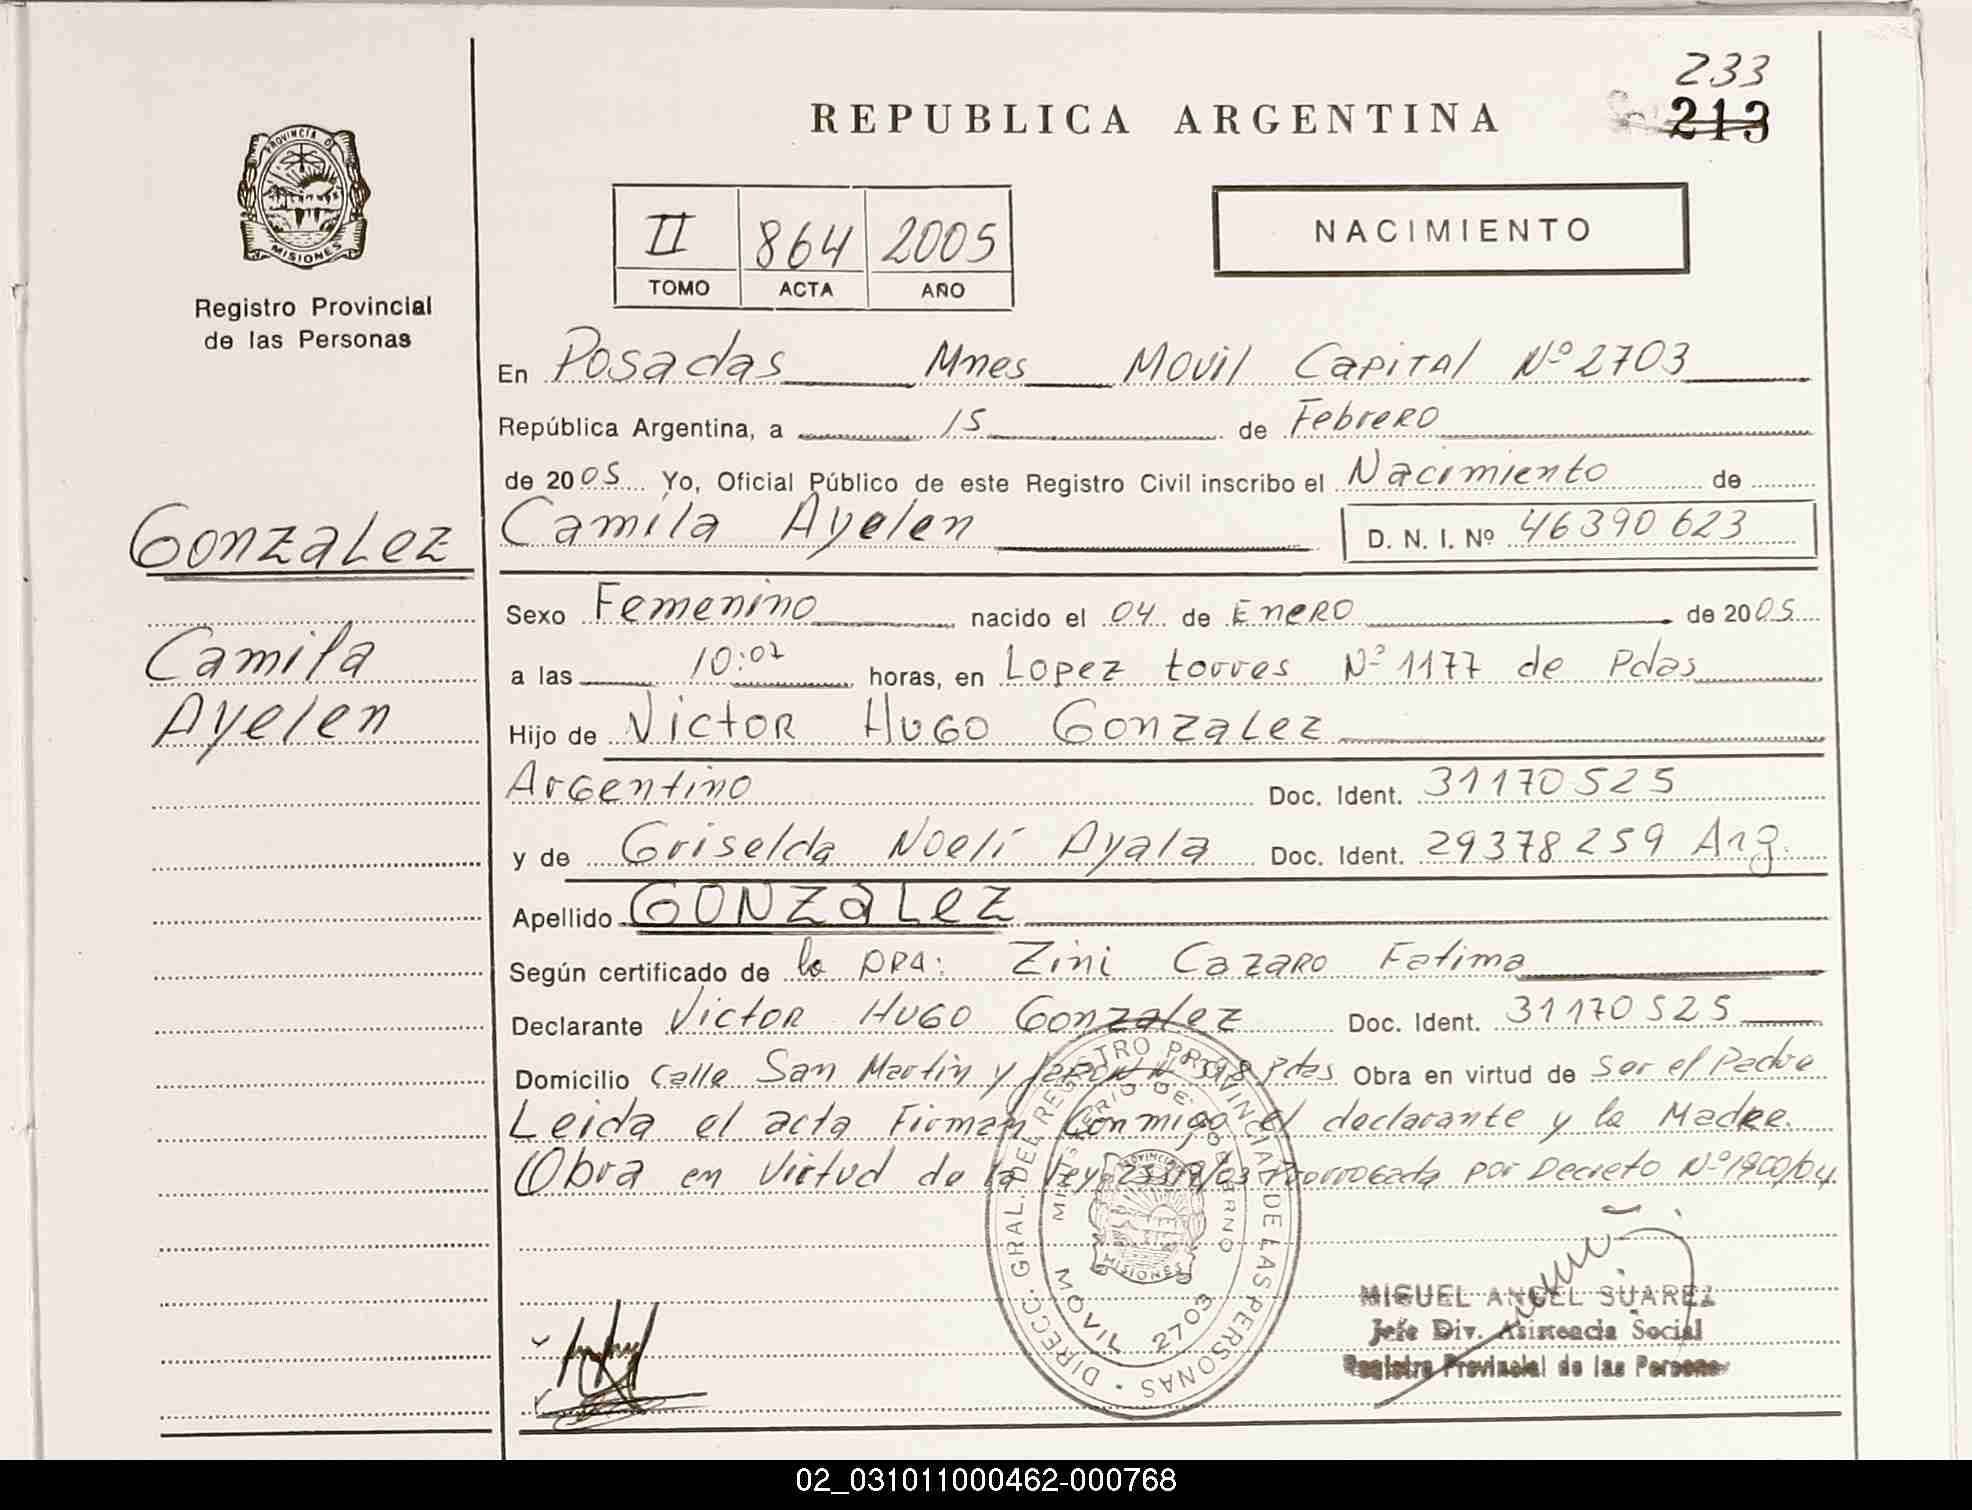 233
213
REPUBLICA ARGENTINA
PROVINCIA DE
MISIONES
Registro Provincial
de las Personas
II 864 2005
TOMO ACTA AÑO
NACIMIENTO
En Posadas Mnes Movil Capital Nº 2703
República Argentina, a 15 de Febrero
de 2005 Yo, Oficial Público de este Registro Civil inscribo el Nacimiento de
Gonzalez
Camila Ayelen D. N. I. Nº 46390623
Sexo Femenino nacido el 04 de Enero de 2005
Camila
a las 10:07 horas, en Lopez torres Nº 1177 de Pdas
Ayelen
Hijo de Victor Hugo Gonzalez
Argentino Doc. Ident. 31170525
y de Griselda Noelí Ayala Doc. Ident. 29378259 Arg.
Apellido GONZALEZ
Según certificado de la DRA: Zini Cazaro Fatima
Declarante Victor Hugo Gonzalez Doc. Ident. 31170525
Domicilio Calle San Martin y Pdas Obra en virtud de Ser el Padre
Leida el acta Firman Conmigo el declarante y la Madre.
Obra en Virtud de la Ley Prorrogada por Decreto Nº 1900/04
DIRECC. GRAL. DEL REGISTRO PROVINCIAL DE LAS PERSONAS
MINISTERIO DE GOBIERNO
PROVINCIA
MISIONES
MOVIL 2703
MIGUEL ANGEL SUAREZ
Jefe Div. Asistencia Social
Registro Provincial de las Personas
02_031011000462-000768